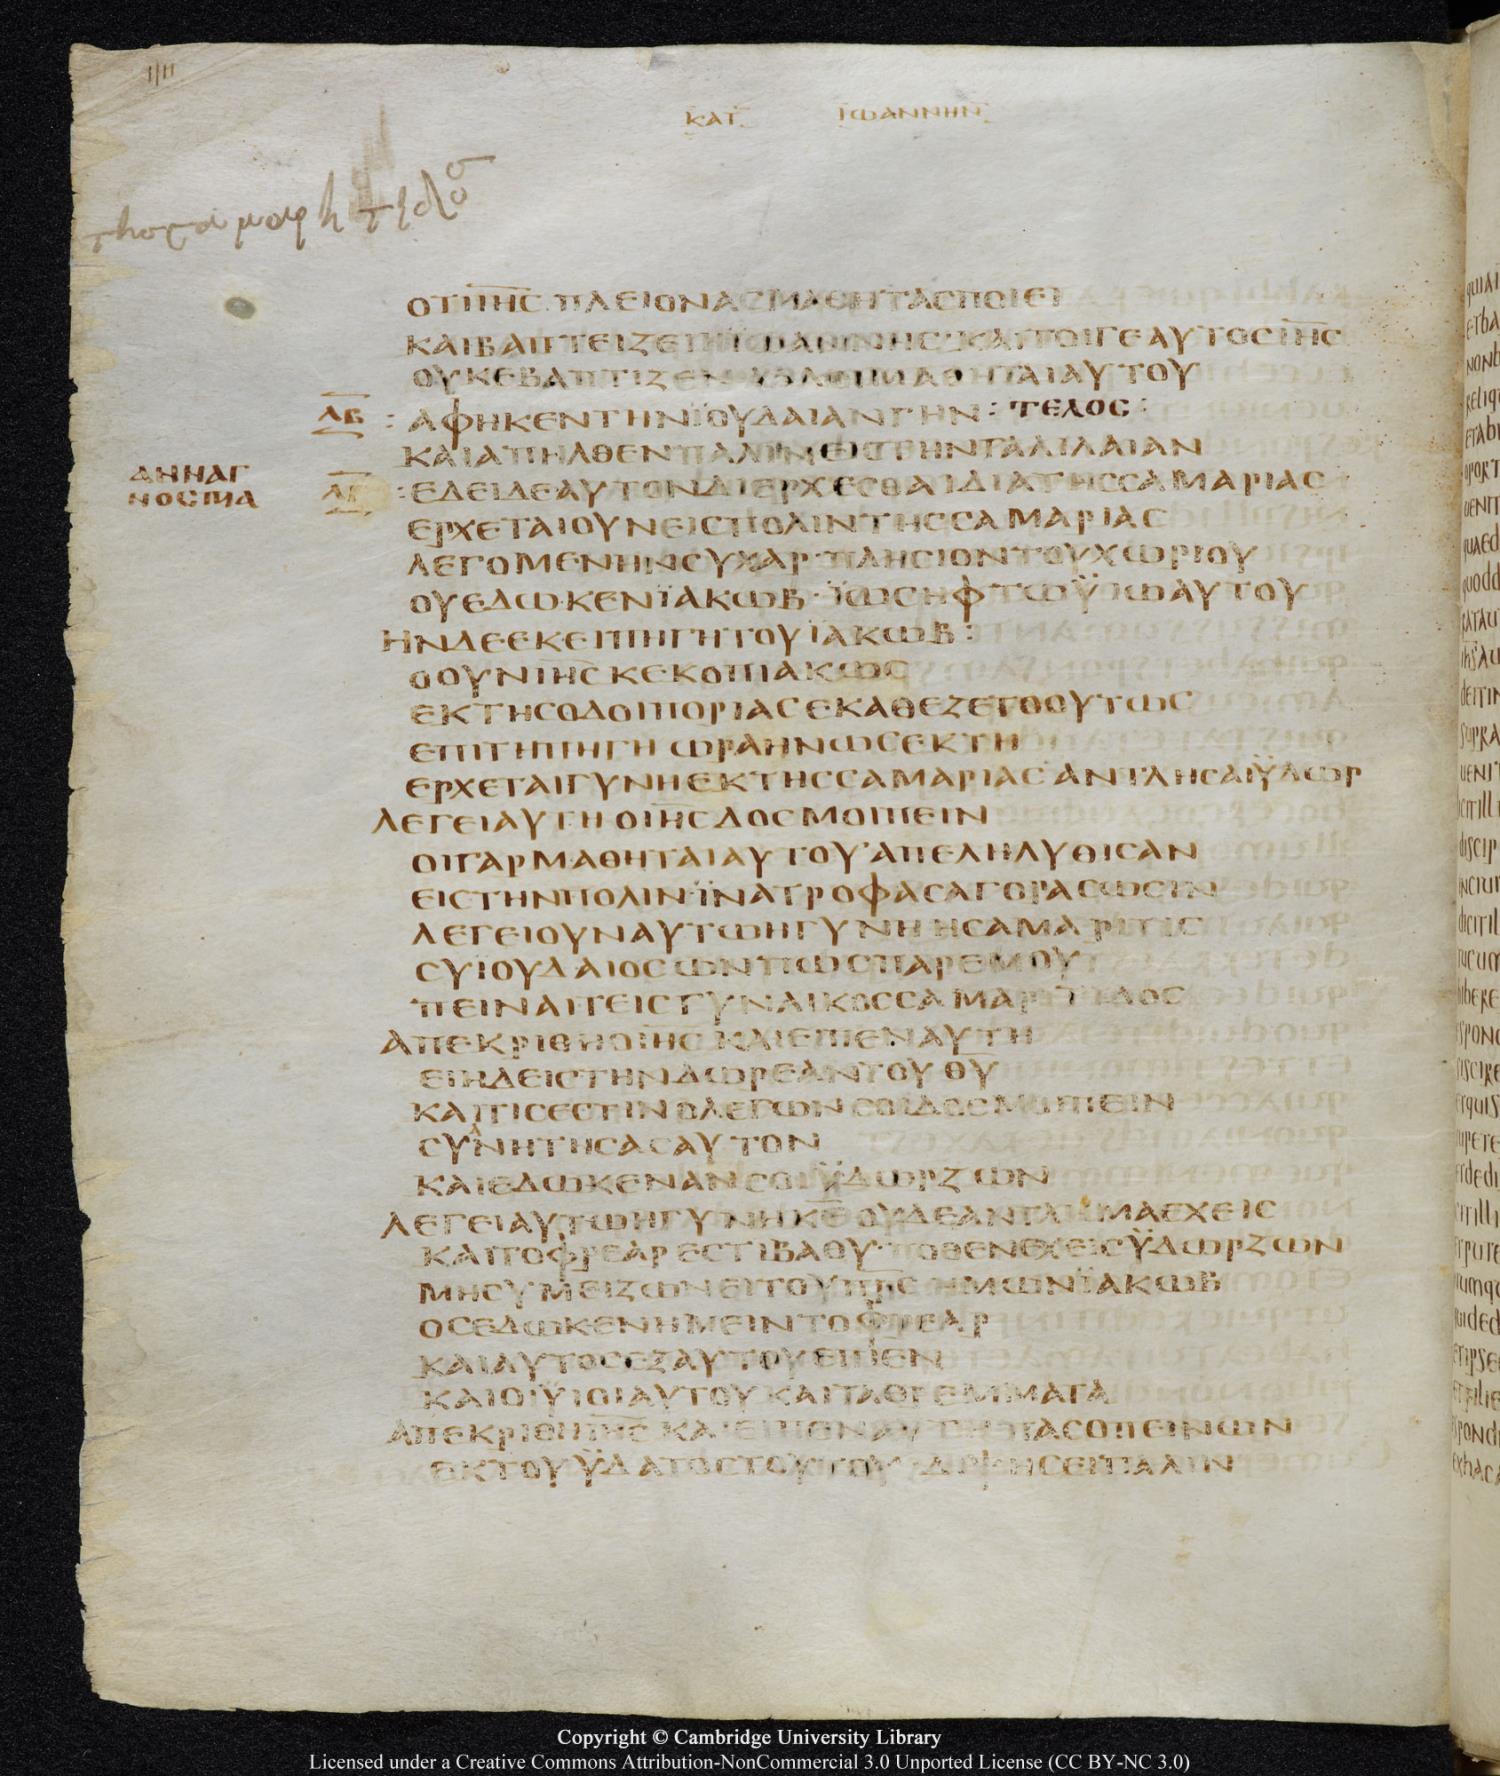 ΚΑΤ ΙΩΑΝΝΗΝ
ΟΤΙ ΙΗΣ ΠΛΕΙΟΝΑΣ ΜΑΘΗΤΑΣ ΠΟΙΕΙ
ΚΑΙ ΒΑΠΤΕΙΖΕΙ Η ΪΩΑΝΝΗΣ ΚΑΙΤΟΙΓΕ ΑΥΤΟΣ ΙΗΣ
ΟΥΚ ΕΒΑΠΤΙΖΕΝ ΑΛΛ ΟΙ ΜΑΘΗΤΑΙ ΑΥΤΟΥ
ΛΒ : ΑΦΗΚΕΝ ΤΗΝ ΪΟΥΔΑΙΑΝ ΓΗΝ : ΤΕΛΟΣ :
ΚΑΙ ΑΠΗΛΘΕΝ ΠΑΛΙΝ ΕΙΣ ΤΗΝ ΓΑΛΙΛΑΙΑΝ
ΑΝΝΑΓ
ΝΟΣΜΑ
ΛΓ : ΕΔΕΙ ΔΕ ΑΥΤΟΝ ΔΙΕΡΧΕΣΘΑΙ ΔΙΑ ΤΗΣ ΣΑΜΑΡΙΑΣ
ΕΡΧΕΤΑΙ ΟΥΝ ΕΙΣ ΠΟΛΙΝ ΤΗΣ ΣΑΜΑΡΙΑΣ
ΛΕΓΟΜΕΝΗΝ ΣΥΧΑΡ · ΠΛΗΣΙΟΝ ΤΟΥ ΧΩΡΙΟΥ
ΟΥ ΕΔΩΚΕΝ ΪΑΚΩΒ · ΪΩΣΗΦ ΤΩ ΫΙΩ ΑΥΤΟΥ
ΗΝ ΔΕ ΕΚΕΙ ΠΗΓΗ ΤΟΥ ΪΑΚΩΒ :
Ο ΟΥΝ ΙΗΣ ΚΕΚΟΠΙΑΚΩΣ
ΕΚ ΤΗΣ ΟΔΟΙΠΟΡΙΑΣ ΕΚΑΘΕΖΕΤΟ ΟΥΤΩΣ
ΕΠΙ ΤΗ ΠΗΓΗ ΩΡΑ ΗΝ ΩΣ ΕΚΤΗ
ΕΡΧΕΤΑΙ ΓΥΝΗ ΕΚ ΤΗΣ ΣΑΜΑΡΙΑΣ ΑΝΤΛΗΣΑΙ ΫΔΩΡ
ΛΕΓΕΙ ΑΥΤΗ Ο ΙΗΣ ΔΟΣ ΜΟΙ ΠΕΙΝ
ΟΙ ΓΑΡ ΜΑΘΗΤΑΙ ΑΥΤΟΥ ΑΠΕΛΗΛΥΘΙΣΑΝ
ΕΙΣ ΤΗΝ ΠΟΛΙΝ · ΪΝΑ ΤΡΟΦΑΣ ΑΓΟΡΑΣΩΣΙΝ
ΛΕΓΕΙ ΟΥΝ ΑΥΤΩ Η ΓΥΝΗ Η ΣΑΜΑΡΙΤΙΣ
ΣΥ ΪΟΥΔΑΙΟΣ ΩΝ ΠΩΣ ΠΑΡ ΕΜΟΥ
ΠΕΙΝ ΑΙΤΕΙΣ ΓΥΝΑΙΚΟΣ ΣΑΜΑΡΙΤΙΔΟΣ
ΑΠΕΚΡΙΘΗ Ο ΙΗΣ ΚΑΙ ΕΙΠΕΝ ΑΥΤΗ
ΕΙ ΗΔΕΙΣ ΤΗΝ ΔΩΡΕΑΝ ΤΟΥ ΘΥ
ΚΑΙ ΤΙΣ ΕΣΤΙΝ Ο ΛΕΓΩΝ ΣΟΙ ΔΟΣ ΜΟΙ ΠΕΙΝ
ΣΥ ΑΝ ΗΤΗΣΑΣ ΑΥΤΟΝ
ΚΑΙ ΕΔΩΚΕΝ ΑΝ ΣΟΙ ΫΔΩΡ ΖΩΝ
ΛΕΓΕΙ ΑΥΤΩ Η ΓΥΝΗ ΚΕ ΟΥΔΕ ΑΝΤΛΗΜΑ ΕΧΕΙΣ
ΚΑΙ ΤΟ ΦΡΕΑΡ ΕΣΤΙ ΒΑΘΥ · ΠΟΘΕΝ ΕΧΕΙΣ ΫΔΩΡ ΖΩΝ
ΜΗ ΣΥ ΜΕΙΖΩΝ ΕΙ ΤΟΥ ΠΡΣ ΗΜΩΝ ΪΑΚΩΒ
ΟΣ ΕΔΩΚΕΝ ΗΜΕΙΝ ΤΟ ΦΡΕΑΡ
ΚΑΙ ΑΥΤΟΣ ΕΞ ΑΥΤΟΥ ΕΠΙΕΝ
ΚΑΙ ΟΙ ΫΙΟΙ ΑΥΤΟΥ ΚΑΙ ΤΑ ΘΡΕΜΜΑΤΑ
ΑΠΕΚΡΙΘΗ ΙΗΣ ΚΑΙ ΕΙΠΕΝ ΑΥΤΗ ΠΑΣ Ο ΠΕΙΝΩΝ
ΕΚ ΤΟΥ ΫΔΑΤΟΣ ΤΟΥΤΟΥ ΔΙΨΗΣΕΙ ΠΑΛΙΝ
Copyright © Cambridge University Library
Licensed under a Creative Commons Attribution-NonCommercial 3.0 Unported License (CC BY-NC 3.0)